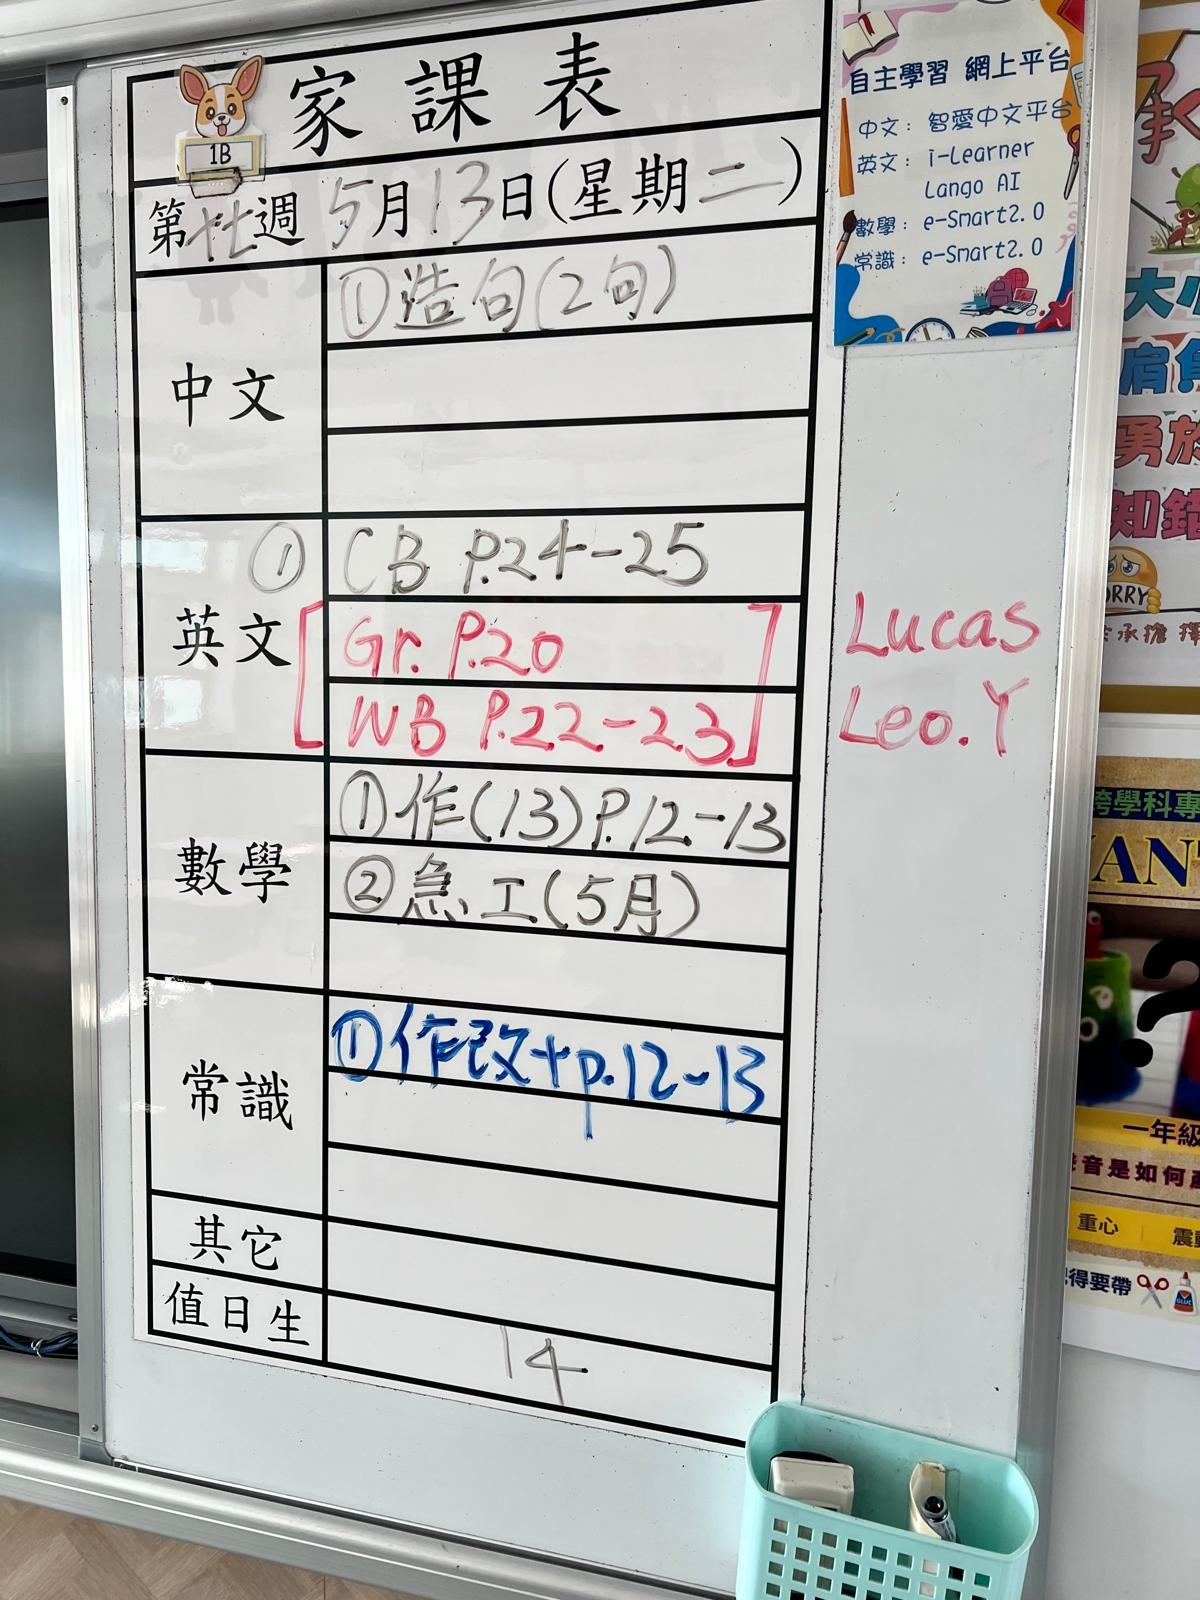 家課表
1B
第廿七週 5月13日(星期二)
中文
①造句(2句)
英文
① CB P.24-25
[Gr. P.20
WB P.22-23]
Lucas
Leo.Y
數學
①作(13)P.12-13
②急工(5月)
常識
①作改+p.12-13
其它
值日生
14
自主學習 網上平台
中文: 智愛中文平台
英文: i-Learner
Lango AI
數學: e-Smart2.0
常識: e-Smart2.0
大小
肩負
勇於
知錯
ORRY
承擔
跨學科專
ANT
?
一年級
音是如何產
重心
震動
記得要帶
GLUE